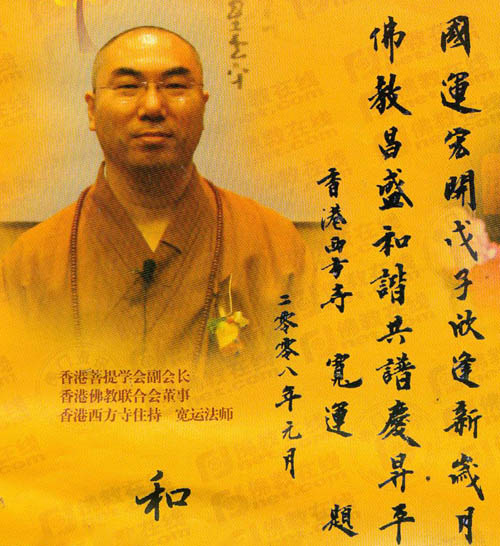 國運宏開戊子欣逢新歲月
佛教昌盛和諧共譜慶昇平
香港西方寺 寬運 題
二零零八年元月
香港菩提学会副会长
香港佛教联合会董事
香港西方寺住持 宽运法师
和